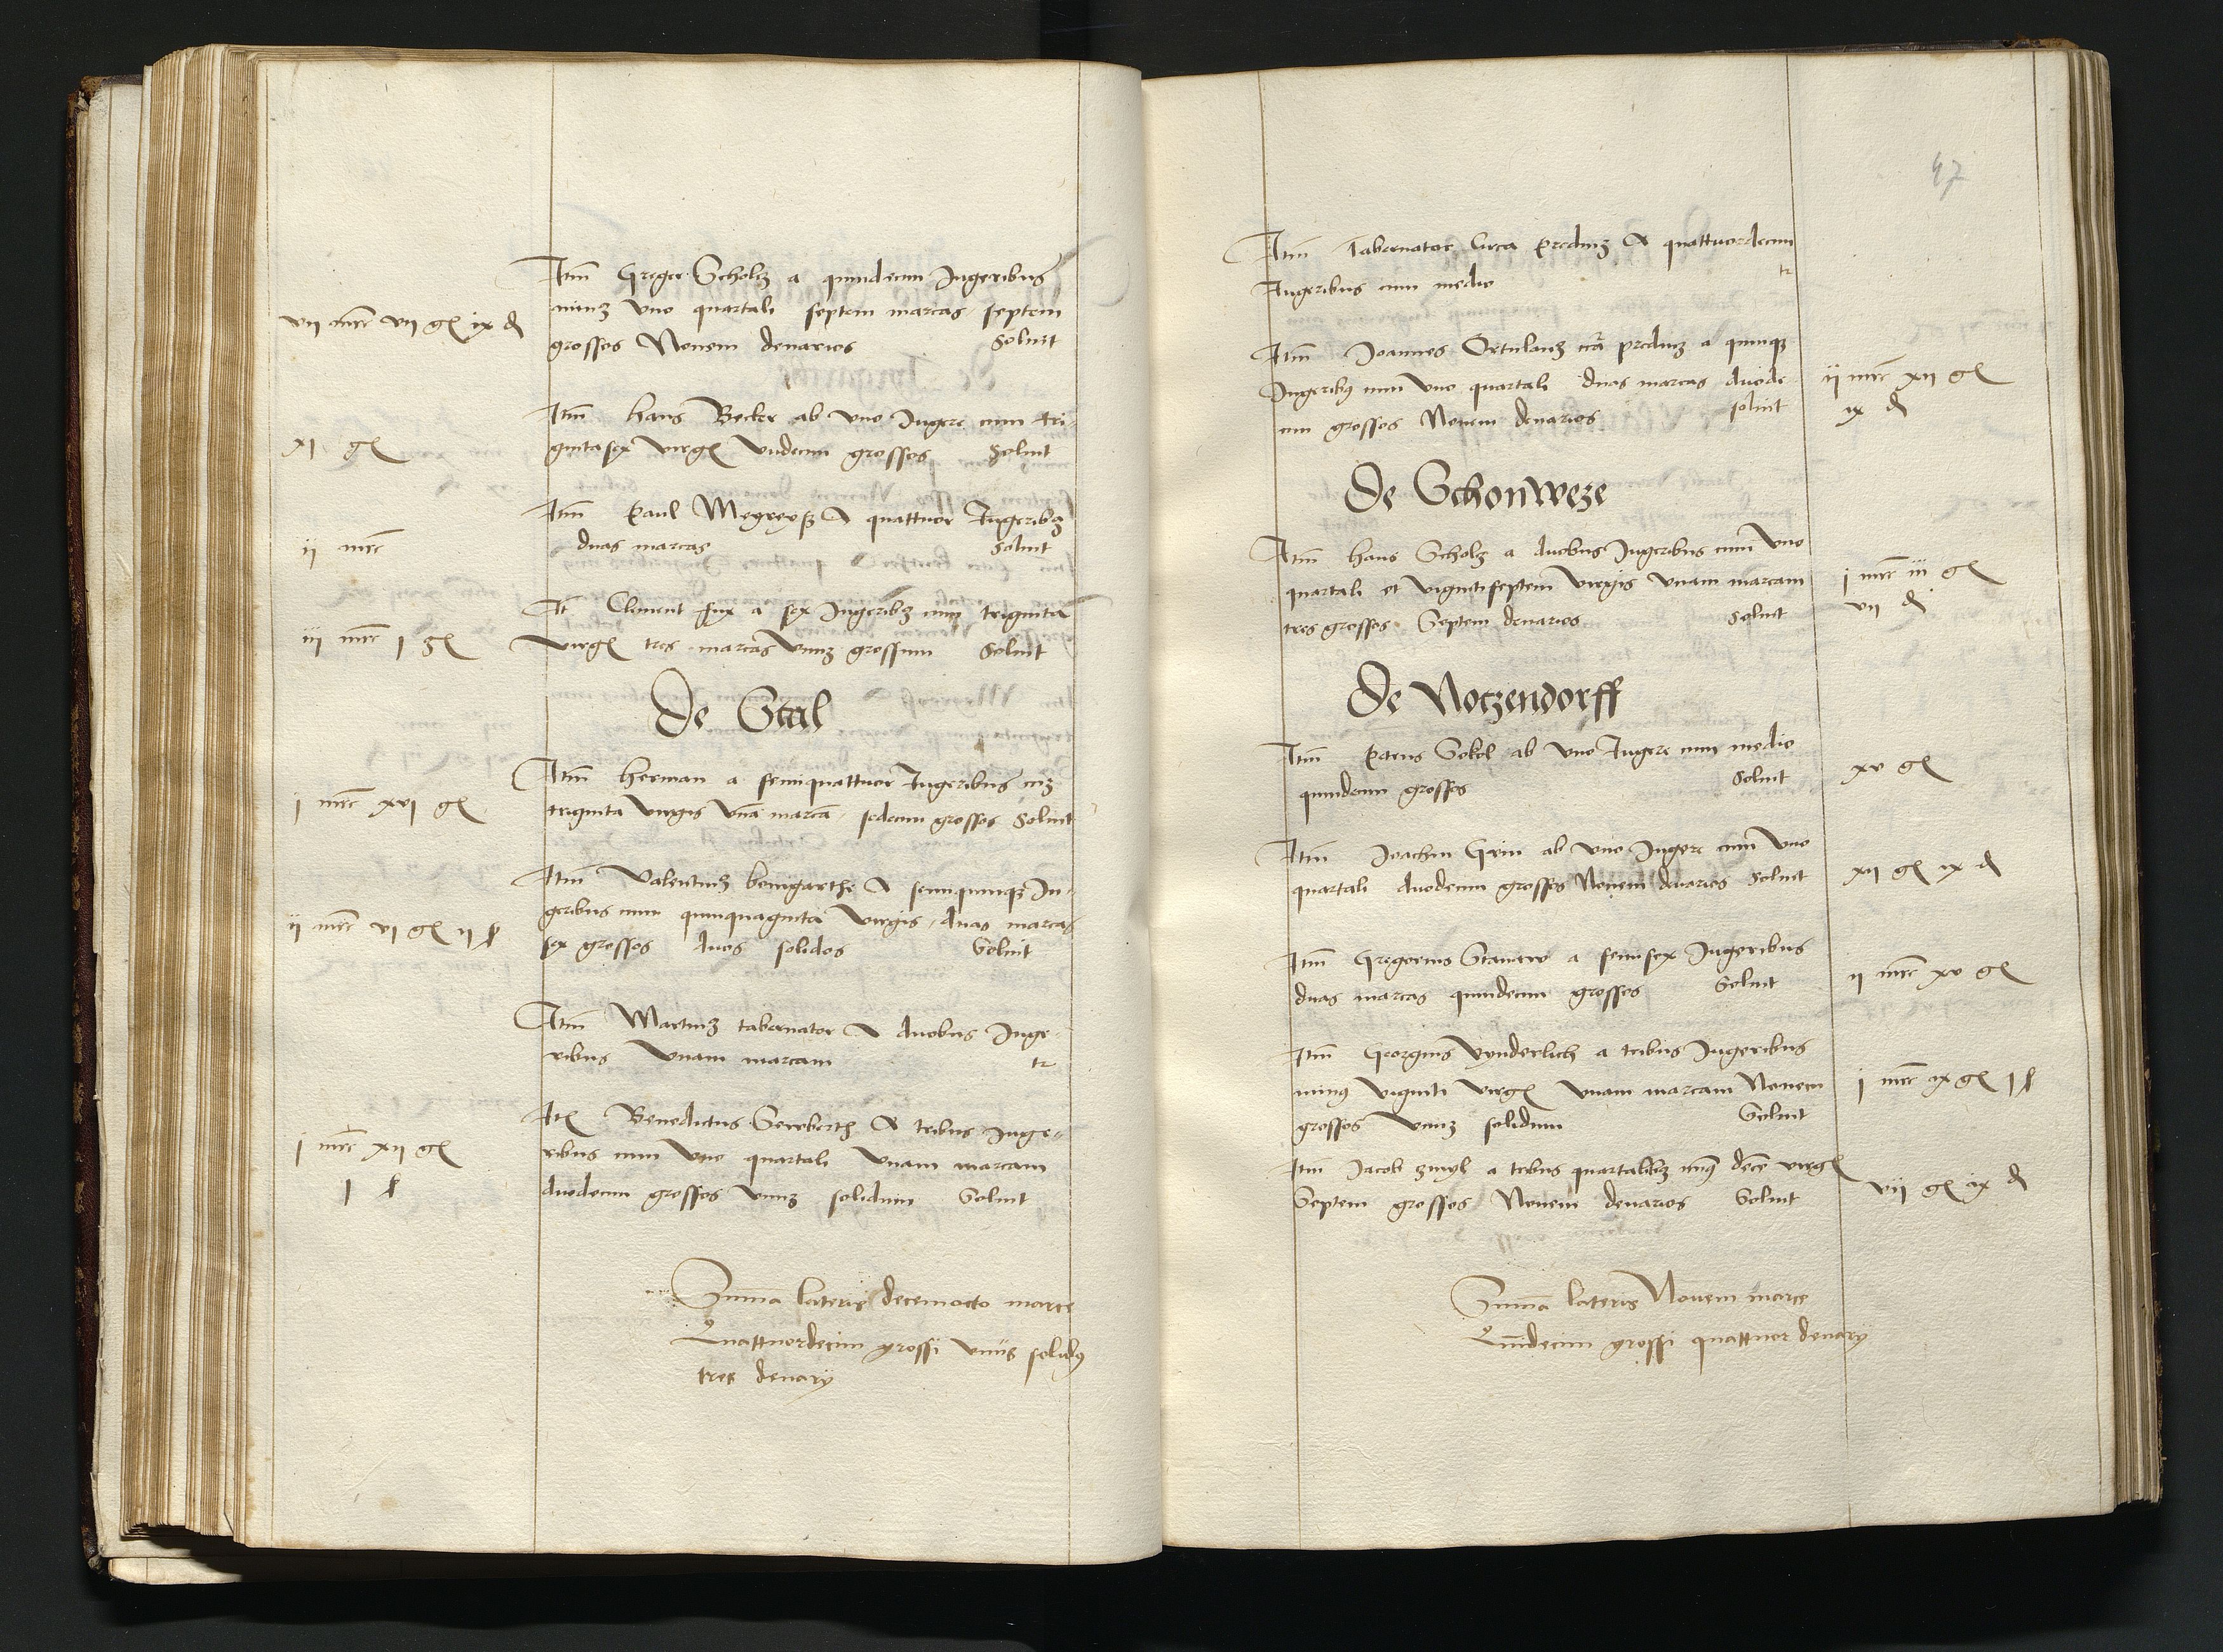 Itm Greger Scholcz a quindecim Jugeribus
minus vno quartali septem marcas septem
vii mrc vii gr ix d
grossos Nouem denarios Soluit
Itm hans Becker ab vno Jugere cum tri-
gintasex virgis vndecim grossos Soluit
xi gr
Itm Paul a quattuor Jugeribus
duas marcas Soluit
ii mrc
It Climent fux a sex Jugeribus cum triginta
virgis tres marcas vnum grossum Soluit
iii mrc i gr
De Stal
Itm herman a semiquattuor Jugeribus cum
triginta virgis vna marca sedecim grossos Soluit
i mrc xvi gr
Itm Valentinus bemgarthe a semiquinque Ju-
geribus cum quinquaginta virgis duas marcas
ii mrc vi gr ii ß
sex grossos duos solidos Soluit
Itm Martinus tabernator a duobus Juge-
ribus vnam marcam tr
Itm Benedictus a tribus Juge-
ribus cum vno quartali vnam marcam
i mrc xii gr
duodecim grossos vnum solidum Soluit
i ß
Summa lateris decemocto marce
Quattuordecim grossi vnus solidus
tres denarij
47
Itm Tabernator circa predium a quattuordecim
Jugeribus cum medio tr
Itm Joannes Ortulanus circa predium a quinque
Jugeribus cum vno quartali duas marcas duode-
ii mrc xii gr
cim grossos Nouem denarios soluit
ix d
De Schonweze
Itm hans Scholz a duobus Jugeribus cum vno
quartali et vigintiseptem virgis vnam marcam
i mrc iii gr
tres grossos Septem denarios Soluit
vii d
De Notzendorff
Itm Petrus Sokol ab vno Jugere cum medio
quindecim grossos Soluit
xv gr
Itm Joachim Grin ab vno Jugere cum vno
quartali duodecim grossos Nouem denarios Soluit
xii gr ix d
Itm Gregorius Stantro a semisex Jugeribus
duas marcas quindecim grossos Soluit
ii mrc xv gr
Itm Georgius Vynderlich a tribus Jugeribus
minus viginti virgis vnam marcam Nouem
i mrc ix gr i ß
grossos vnum solidum Soluit
Itm Jacob zmyl a tribus quartalibus minus decem virgis
Septem grossos Nouem denarios Soluit
vii gr ix d
Summa lateris Nouem marce
Quindecim grossi quattuor denarij